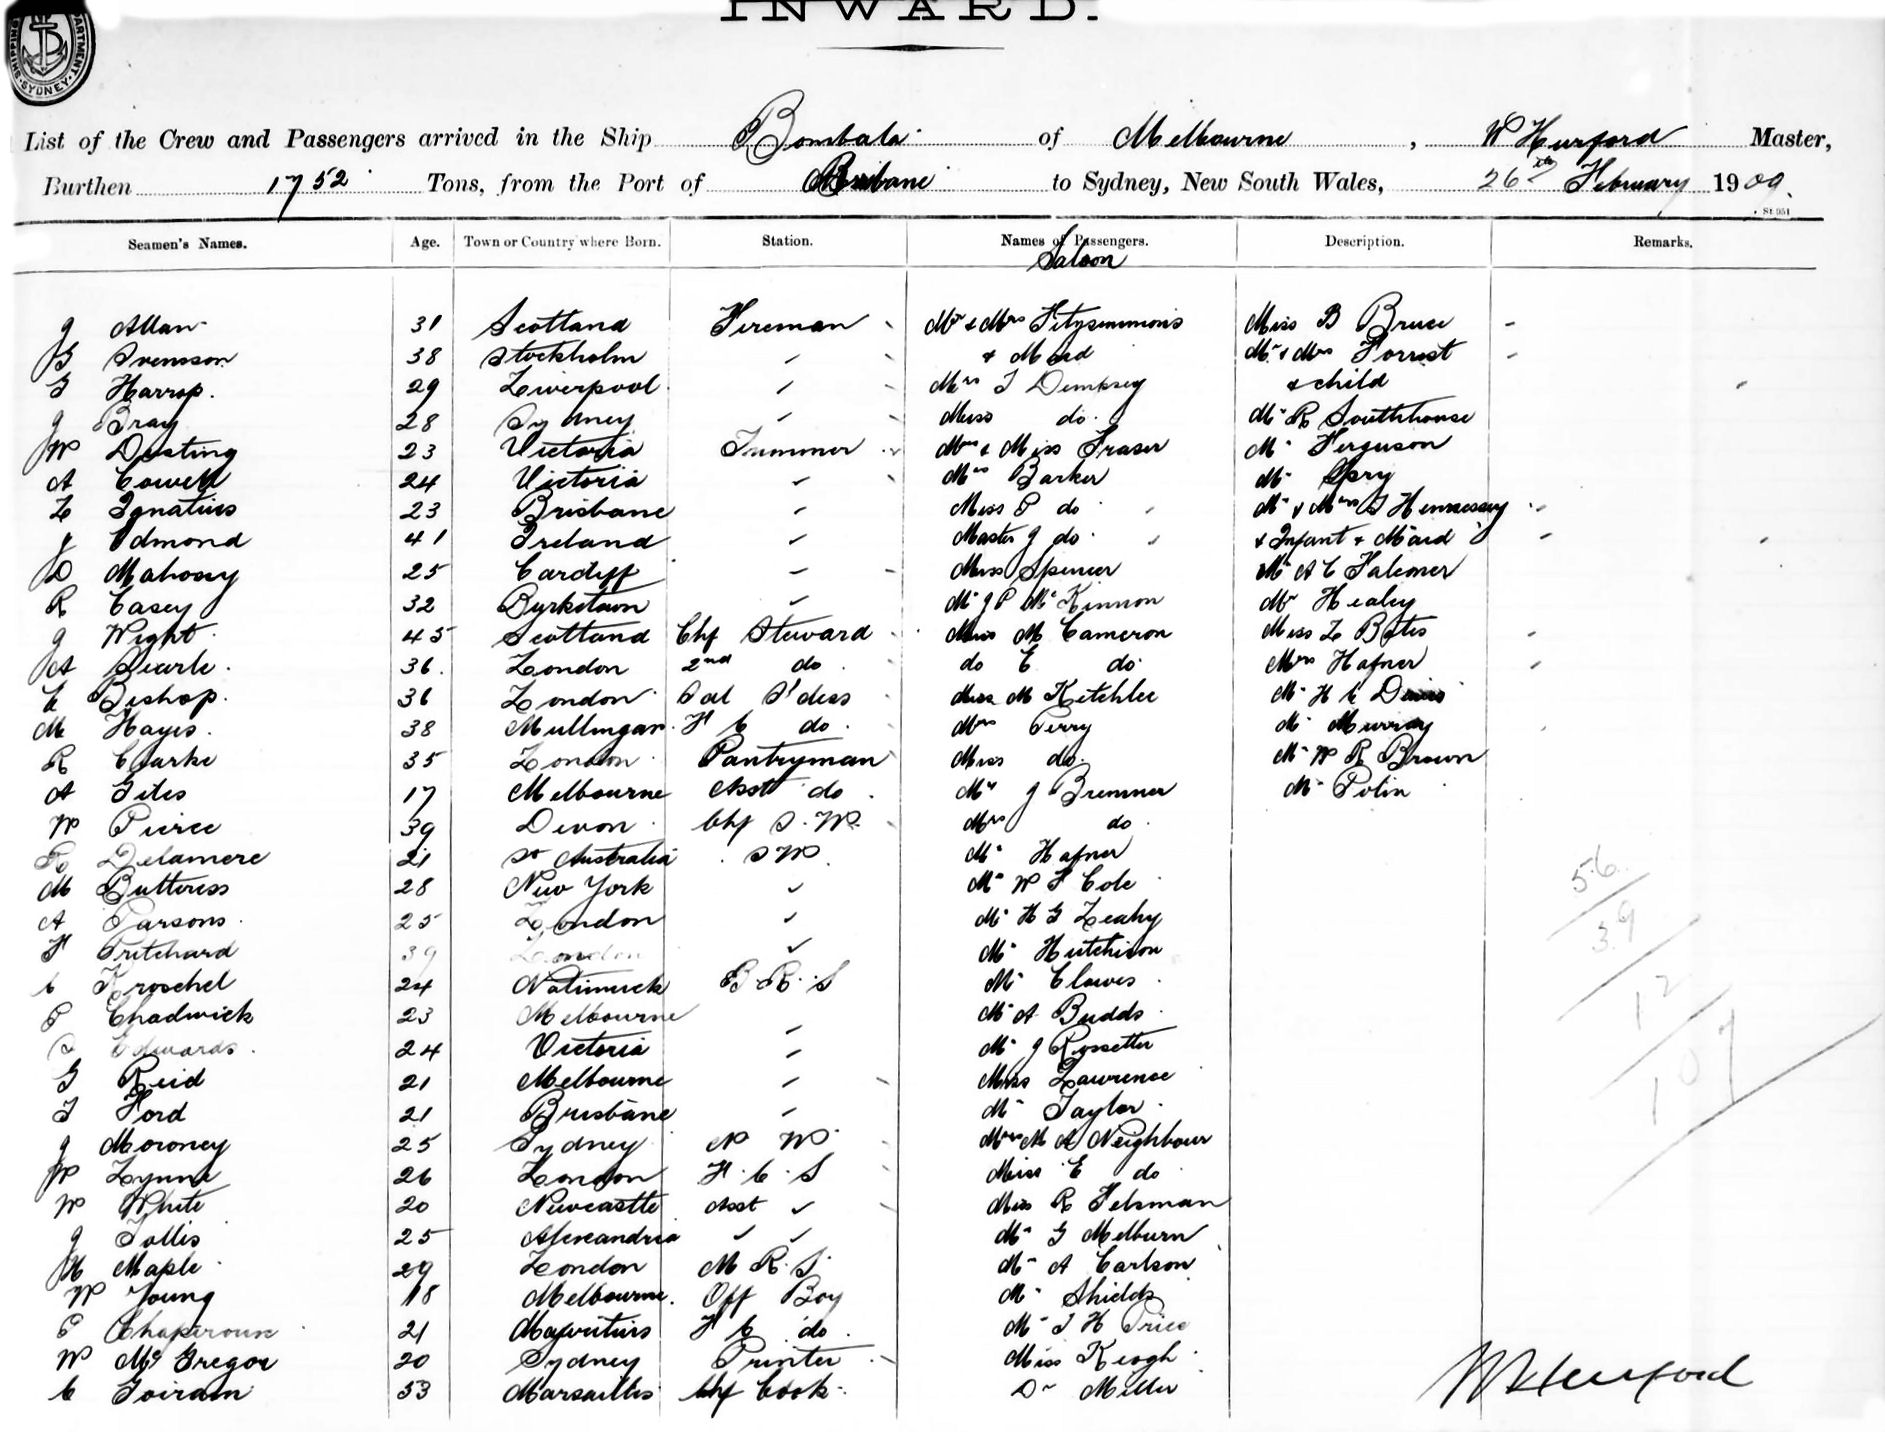 INWARD.
SHIPPING DEPARTMENT · SYDNEY
List of the Crew and Passengers arrived in the Ship Bombala of Melbourne, W Hurford Master,
Burthen 1752 Tons, from the Port of Brisbane to Sydney, New South Wales, 26th February 1909.
St.951
Seamen's Names. Age. Town or Country where Born. Station. Names of Passengers. Description. Remarks.
Saloon
J Allan 31 Scotland Fireman Mr & Mrs Fitzsimmons Miss B Bruce
G Svensson 38 Stockholm & Maid Mr & Mrs Forrest
G Harrop. 29 Liverpool Mrs T Dempsey & child
J Bray 28 Sydney Miss do. Mr R Southhouse
W Dosting 23 Victoria Trimmer Mrs & Miss Fraser Mr Ferguson
A Cowell 24 Victoria Mrs Barker Mr Spry
L Ignatius 23 Brisbane Miss P do Mr & Mrs J Hennessey
J Edmond 41 Ireland Master J do. & Infant & Maid
D Mahony 25 Cardiff Miss Spencer Mr A C Falconer
R Casey 32 Byrkstown Mr J P McKinnon Mr Healey
J Wight 45 Scotland Chf Steward Miss M Cameron Miss L Bates
A Searle. 36. London 2nd do do E do Mrs Hafner
E Bishop. 36 London Sal S'dess Miss M Ketchlee Mr H C
M Hayes. 38 Mullingar F C do. Mrs Perry Mr Murray
R Clarke 35 London Pantryman Miss do. Mr W R Brown
A Giles 17 Melbourne Asst do Mr J Bremner Mr Polin
W Pierce 39 Devon Chf S. W. Mrs do
R Delamere 21 St Australia S W. Mr Hafner
M Butteriss 28 New York Mr W F Cole
A Parsons. 25 London Mr H G Leahy
F Pritchard 39 London Mr Hutchison
C Kroschel 24 Natimuck B. R. S Mr Clowes
P Chadwick 23 Melbourne Mr A Budds
S Edwards. 24 Victoria Mr J Rossetter
G Reid 21 Melbourne Miss Lawrence
T Ford 21 Brisbane Mr Taylor
J Moroney 25 Sydney N W Mrs M A Neighbour
W Lynne 26 London F. C. S Miss E do
W White 20 Newcastle Asst Miss R Felsman
J Tollis 25 Alexandria Mr G Melburn
H Maple 29 London M R. S. Mr A Carlson
W Young 18 Melbourne. Off Boy Mr Shields
P Chaperoun 21 Mauritius F C do. Mr T H Price
W McGregor 20 Sydney Printer Miss Keogh
C Goiram 53 Marsailles Chf Cook Dr Miller
56
39
12
107
W Hurford